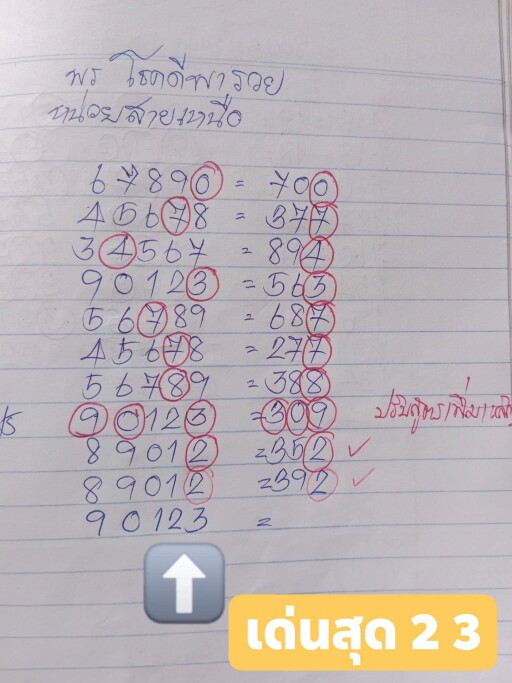 พร โชคดีพารวย
หน่วยสายเหนือ
67890 = 700
45678 = 377
34567 = 894
90123 = 563
56789 = 687
45678 = 277
56789 = 388
90123 = 309 ปรับสูตรเพิ่ม
89012 = 352 ✓
89012 = 392 ✓
90123 =
เด่นสุด 2 3